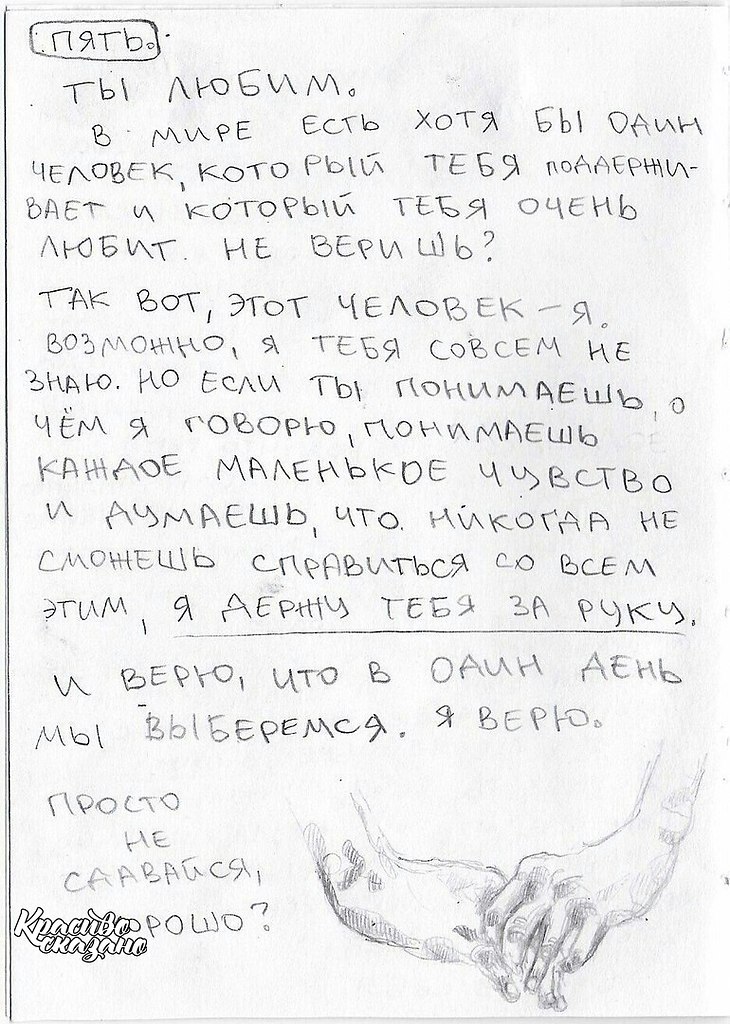 ПЯТЬ.
ТЫ ЛЮБИМ.
В МИРЕ ЕСТЬ ХОТЯ БЫ ОДИН
ЧЕЛОВЕК, КОТОРЫЙ ТЕБЯ ПОДДЕРЖИ-
ВАЕТ И КОТОРЫЙ ТЕБЯ ОЧЕНЬ
ЛЮБИТ. НЕ ВЕРИШЬ?
ТАК ВОТ, ЭТОТ ЧЕЛОВЕК – Я.
ВОЗМОЖНО, Я ТЕБЯ СОВСЕМ НЕ
ЗНАЮ. НО ЕСЛИ ТЫ ПОНИМАЕШЬ, О
ЧЁМ Я ГОВОРЮ, ПОНИМАЕШЬ
КАЖДОЕ МАЛЕНЬКОЕ ЧУВСТВО
И ДУМАЕШЬ, ЧТО НИКОГДА НЕ
СМОЖЕШЬ СПРАВИТЬСЯ СО ВСЕМ
ЭТИМ, Я ДЕРЖУ ТЕБЯ ЗА РУКУ.
И ВЕРЮ, ЧТО В ОДИН ДЕНЬ
МЫ ВЫБЕРЕМСЯ. Я ВЕРЮ.
ПРОСТО
НЕ
СДАВАЙСЯ,
РОШО?
Красиво
сказано